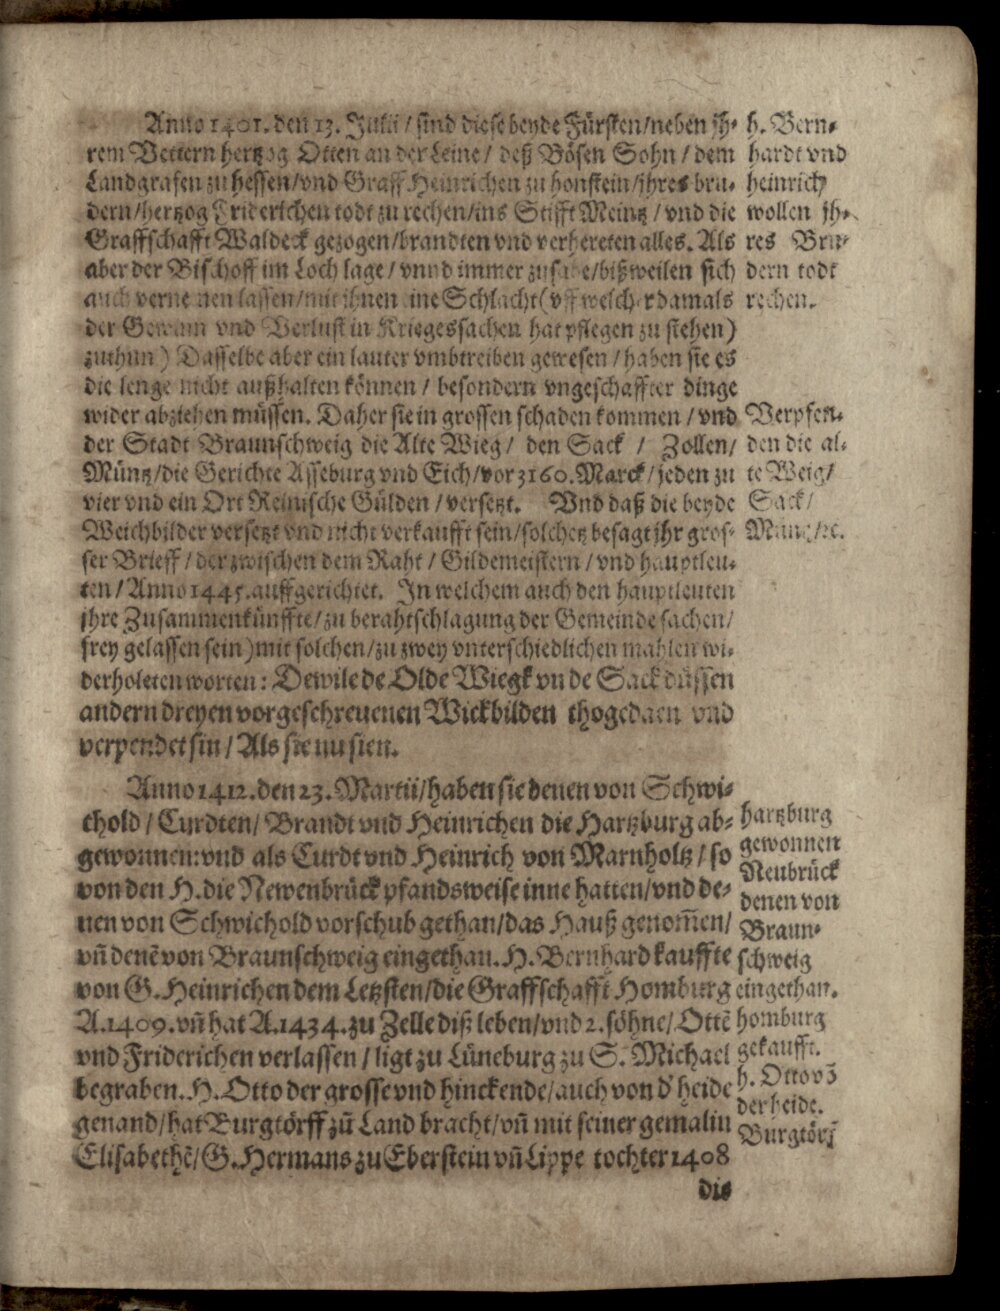 Anno 1401. den 13. Julii / sind diese beyde Fürsten/neben jh-
rem Vettern hertzog Otten an der Leine / deß Bösen Sohn / dem
Landgrafen zu hessen/vnd Graff Heinrichen zu honstein/jhres bru-
dern/hertzog Friderichen todt zu rechen/ins Stifft Meintz / vnd die
Graffschafft Waldeck gezogen/brandten vnd verhereten alles. Als
aber der Bischoff im Loch lage / vnnd immer zusahe/bißweilen sich
auch vernemen lassen/mit ihnen eine Schlacht (vff welcher damals
der Gewinn vnd Verlust in Kriegessachen hat pflegen zu stehen)
zuthun) Dasselbe aber ein lauter vmbtreiben gewesen / haben sie es
die lenge nicht außhalten können / besondern vngeschaffter dinge
wider abziehen müssen. Daher sie in grossen schaden kommen / vnd
der Stadt Braunschweig die Alte Wieg / den Sack / Zollen/
Müntz/die Gerichte Asseburg vnd Eich/vor 3160. Marck/jeden zu
vier vnd ein Ort Reinische Gülden / versetzt. Vnd daß die beyde
Weichbilder versetzt vnd nicht verkaufft sein/solchetz besagt jhr gros-
ser Brieff / der zwischen dem Raht / Gildemeistern / vnd hauptleu-
ten / Anno 1445. auffgerichtet. In welchem auch den hauptleuten
jhre Zusammenkünffte/zu berahtschlagung der Gemeinde sachen/
frey gelassen sein) mit solchen/zu zwey vnterschiedlichen mahlen wi-
derholeten worten: Dewile de Olde Wiegk vn de Sack düssen
andern dreyen vorgeschreuenen Wickbilden thogedaen vnd
verpendet sin / Als sie nu sien.
Anno 1412. den 23. Martii/haben sie denen von Schwi-
chold / Curdten/ Brandt vnd Heinrichen die Hartzburg ab-
gewonnen: vnd als Curdt vnd Heinrich von Marnholtz / so
von den H. die Newenbrück pfandsweise inne hatten/vnd de-
nen von Schwichold vorschub gethan/das Hauß genom̃en/
vñ denẽ von Braunschweig eingethan. H. Bernhard kauffte
von G. Heinrichen dem Letzsten/die Graffschafft Homburg
A. 1409. vñ hat A. 1434. zu Zelle diß leben/vnd 2. söhne/Ottẽ
vnd Friderichen verlassen / ligt zu Lüneburg zu S. Michael
begraben. H. Otto der grosse vnd hinckende/auch von d' heide
genand/hat Burgtörff zū Land bracht/vñ mit seiner gemalin
Elisabethẽ/G. Hermans zu Eberstein vñ Lippe tochter 1408
die
h. Bern-
hardt vnd
heinrich
wollen jh-
res Bru-
dern todt
rechen.
Verpfen-
den die al-
te Weig/
Sack/
Müntz/rc.
hartzburg
gewonnen
Neubrück
denen von
Braun-
schweig
eingethan.
homburg
gekaufft.
h. Otto võ
der heide.
Burgtörf